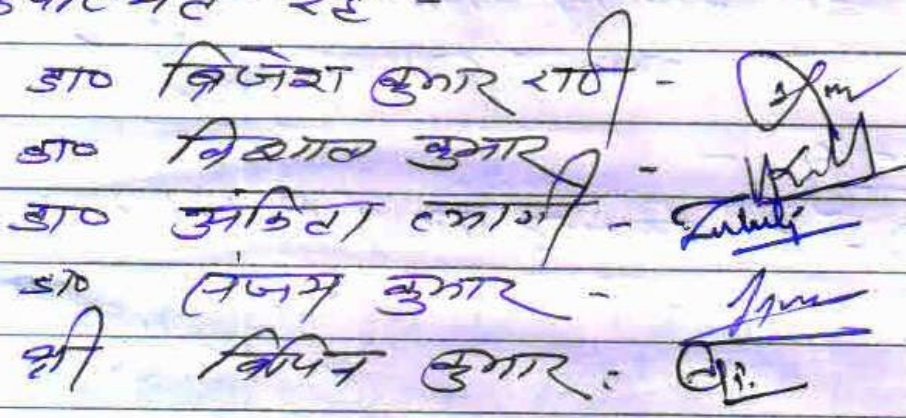 उपस्थित रहे -
डा० ब्रिजेश कुमार राठी -
डा० विशाल कुमार -
डा० अंकिता त्यागी -
डा० संजय कुमार -
श्री विपिन कुमार :